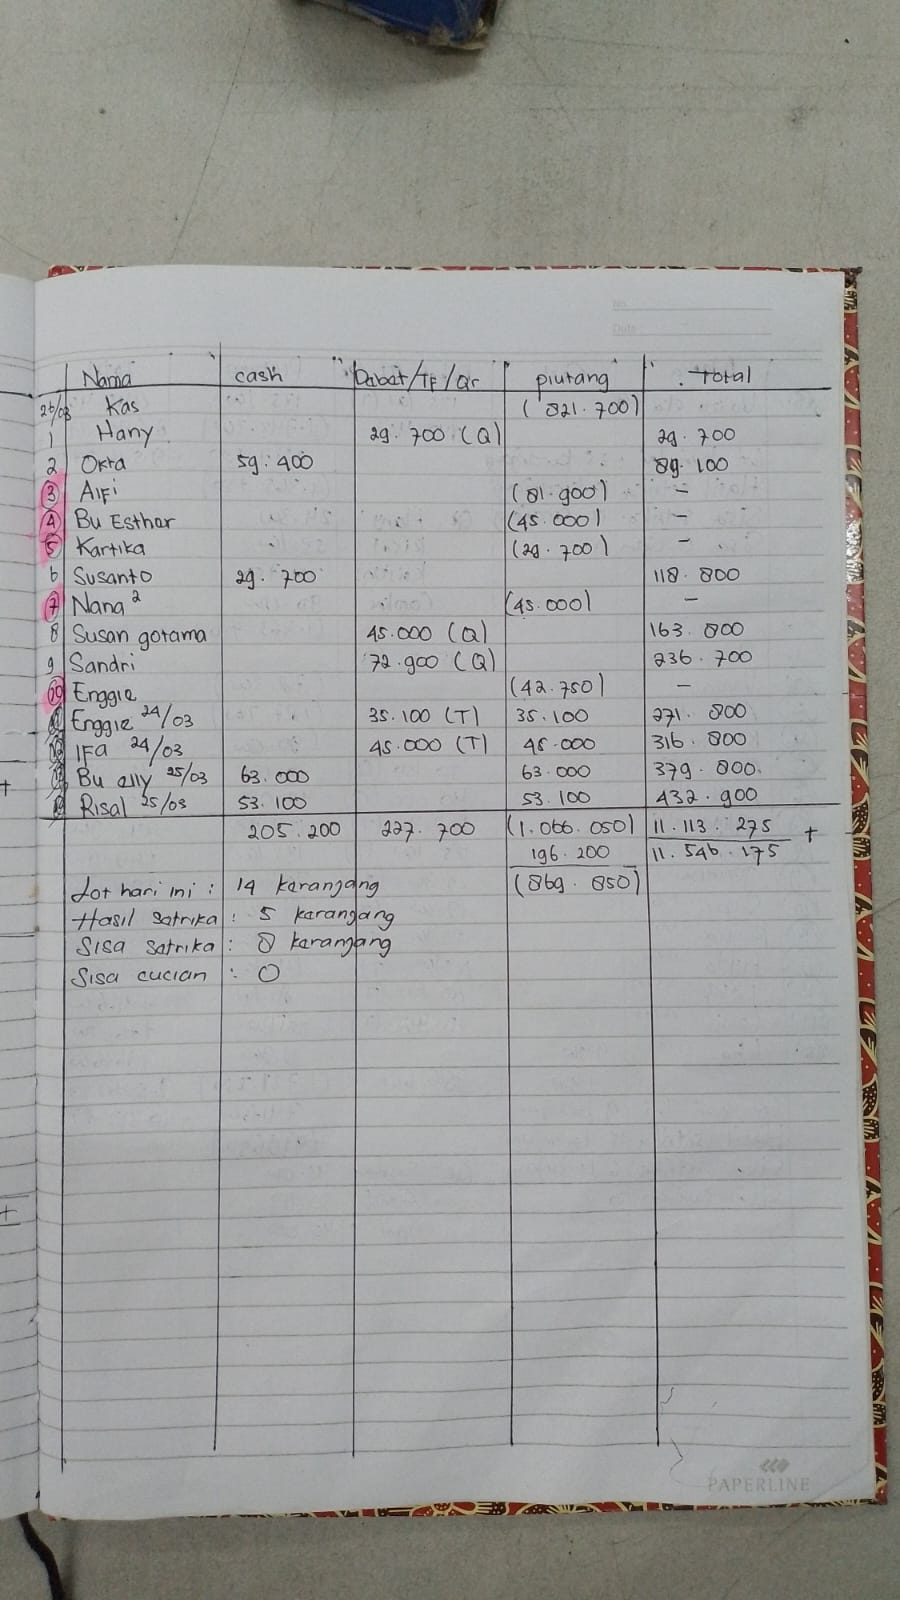 No.
Date
Nama cash Debet/TF/Qr piutang Total
26/03 Kas (821.700)
1 Hany 29.700 (Q) 29.700
2 Okta 59.400 89.100
3 Alfi (81.900) -
4 Bu Esther (45.000) -
5 Kartika (29.700) -
6 Susanto 29.700 118.800
7 Nana² (45.000) -
8 Susan gotama 45.000 (Q) 163.800
9 Sandri 72.900 (Q) 236.700
10 Enggie (42.750) -
Enggie 24/03 35.100 (T) 35.100 271.800
IFa 24/03 45.000 (T) 45.000 316.800
Bu elly 25/03 63.000 63.000 379.800
Risal 25/03 53.100 53.100 432.900
205.200 227.700 (1.066.050) 11.113.275 +
196.200 11.546.175
(869.850)
Jot hari ini : 14 keranjang
Hasil setrika : 5 keranjang
Sisa setrika : 8 keranjang
Sisa cucian : 0
PAPERLINE